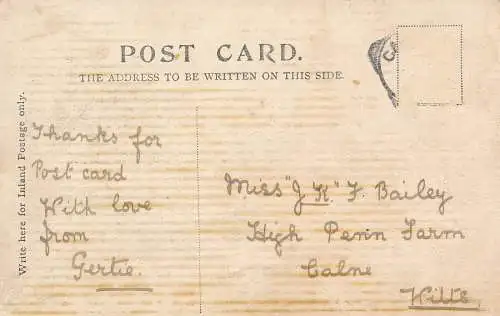 POST CARD.
THE ADDRESS TO BE WRITTEN ON THIS SIDE.
Write here for Inland Postage only.
Thanks for
Post card
With love
from
Gertie.
Miss "J K" F. Bailey
High Penn Farm
Calne
Wilts.